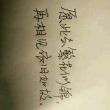 愿此去繁花似锦
再相见依旧如故。